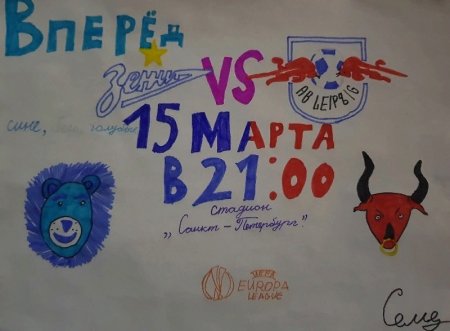 Вперёд
Зенит VS
АВ LEIPZIG
сине, бело, голубые
15 МАРТА
В 21:00
стадион
„Санкт-Петербург"
UEFA
EUROPA
LEAGUE